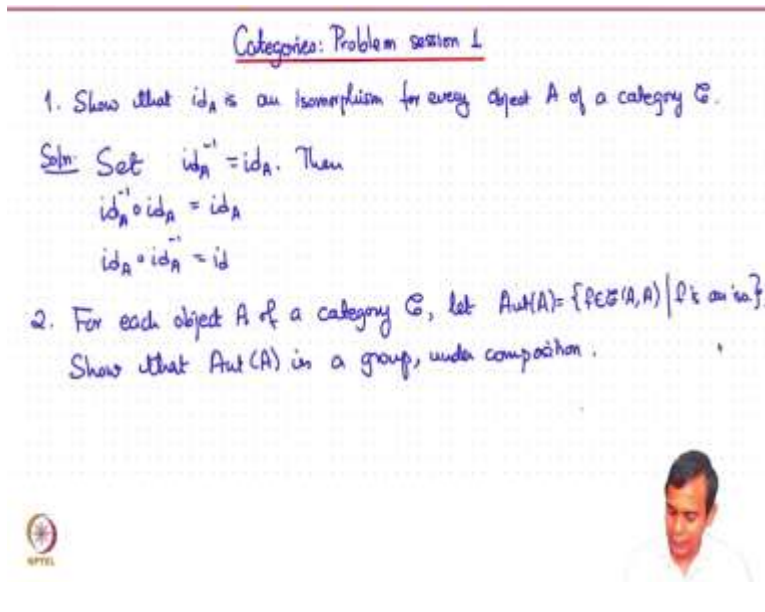 Categories: Problem session 1
1. Show that id_A is an Isomorphism for every object A of a category 𝒞.
Soln: Set id_A⁻¹ = id_A. Then
id_A⁻¹ ∘ id_A = id_A
id_A ∘ id_A⁻¹ = id
2. For each object A of a category 𝒞, let Aut(A) = {f ∈ 𝒞(A,A) | f is an iso.}
Show that Aut(A) is a group, under composition.
NPTEL